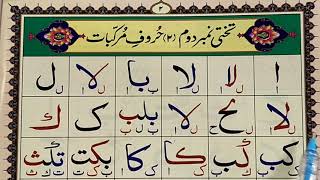 ۲
تختی نمبر دوم (۲) حُروفِ مُرکّبات
ا لا لا با لا ل
لا لا بلب ک ك
کب كب كا کا بکت تكث